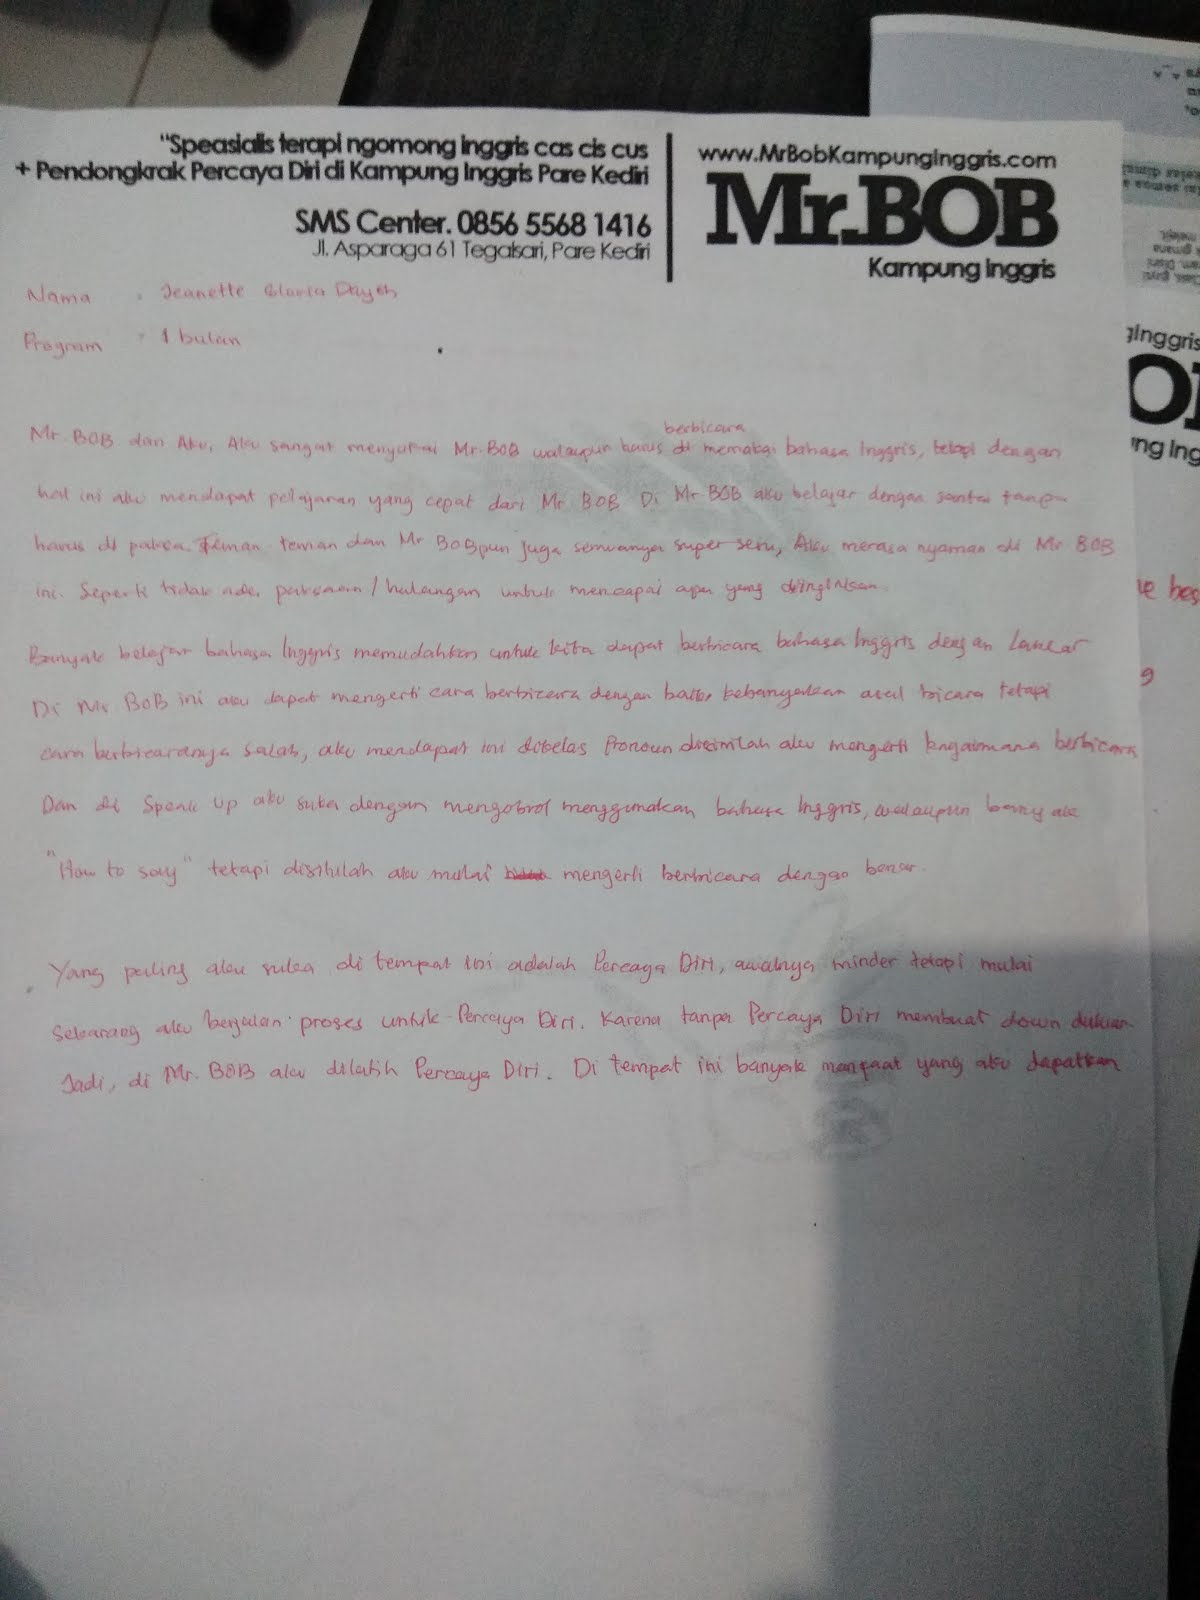 "Speasialis terapi ngomong Inggris cas cis cus
+ Pendongkrak Percaya Diri di Kampung Inggris Pare Kediri
SMS Center. 0856 5568 1416
Jl. Asparaga 61 Tegalsari, Pare Kediri
www.MrBobKampungInggris.com
Mr.BOB
Kampung Inggris
Nama : Jeanette Gloria
Program : 1 bulan
berbicara
Mr. BOB dan Aku, Aku sangat menyukai Mr. BOB walaupun harus di memakai bahasa Inggris, tetapi dengan
hal ini aku mendapat pelajaran yang cepat dari Mr BOB Di Mr BOB aku belajar dengan santai tanpa
harus di paksa. Teman teman dan Mr BOB pun juga semuanya super seru, Aku merasa nyaman di Mr BOB
ini. Seperti tidak ada, paksaan / halangan untuk mencapai apa yang diinginkan.
Banyak belajar bahasa Inggris memudahkan untuk kita dapat berbicara bahasa Inggris dengan Lancar
Di Mr BOB ini aku dapat mengerti cara berbicara dengan baik, kebanyakan asal bicara tetapi
cara berbicaranya salah, aku mendapat ini dikelas Pronoun disinilah aku mengerti bagaimana berbicara
Dan di Speak up aku suka dengan mengobrol menggunakan bahasa Inggris, walaupun banyak
"How to say" tetapi disitulah aku mulai mengerti berbicara dengan benar.
Yang paling aku suka di tempat ini adalah Percaya Diri, awalnya minder tetapi mulai
sekarang aku berjalan proses untuk Percaya Diri. Karena tanpa Percaya Diri membuat down
Jadi, di Mr. BOB aku dilatih Percaya Diri. Di tempat ini banyak manfaat yang aku dapatkan